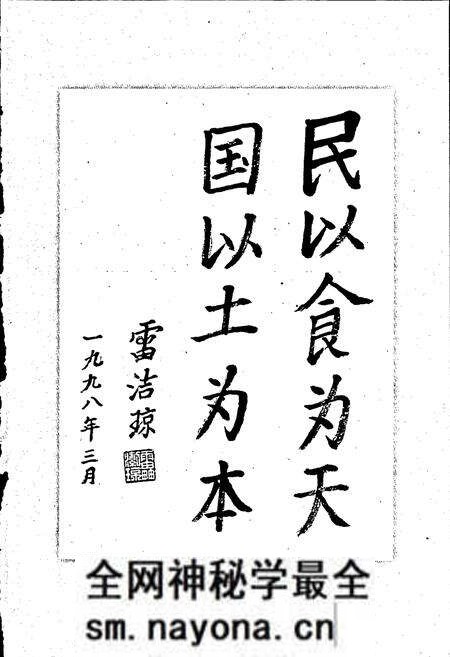 民以食为天
国以土为本
雷洁琼
一九九八年三月
全网神秘学最全
sm.nayona.cn